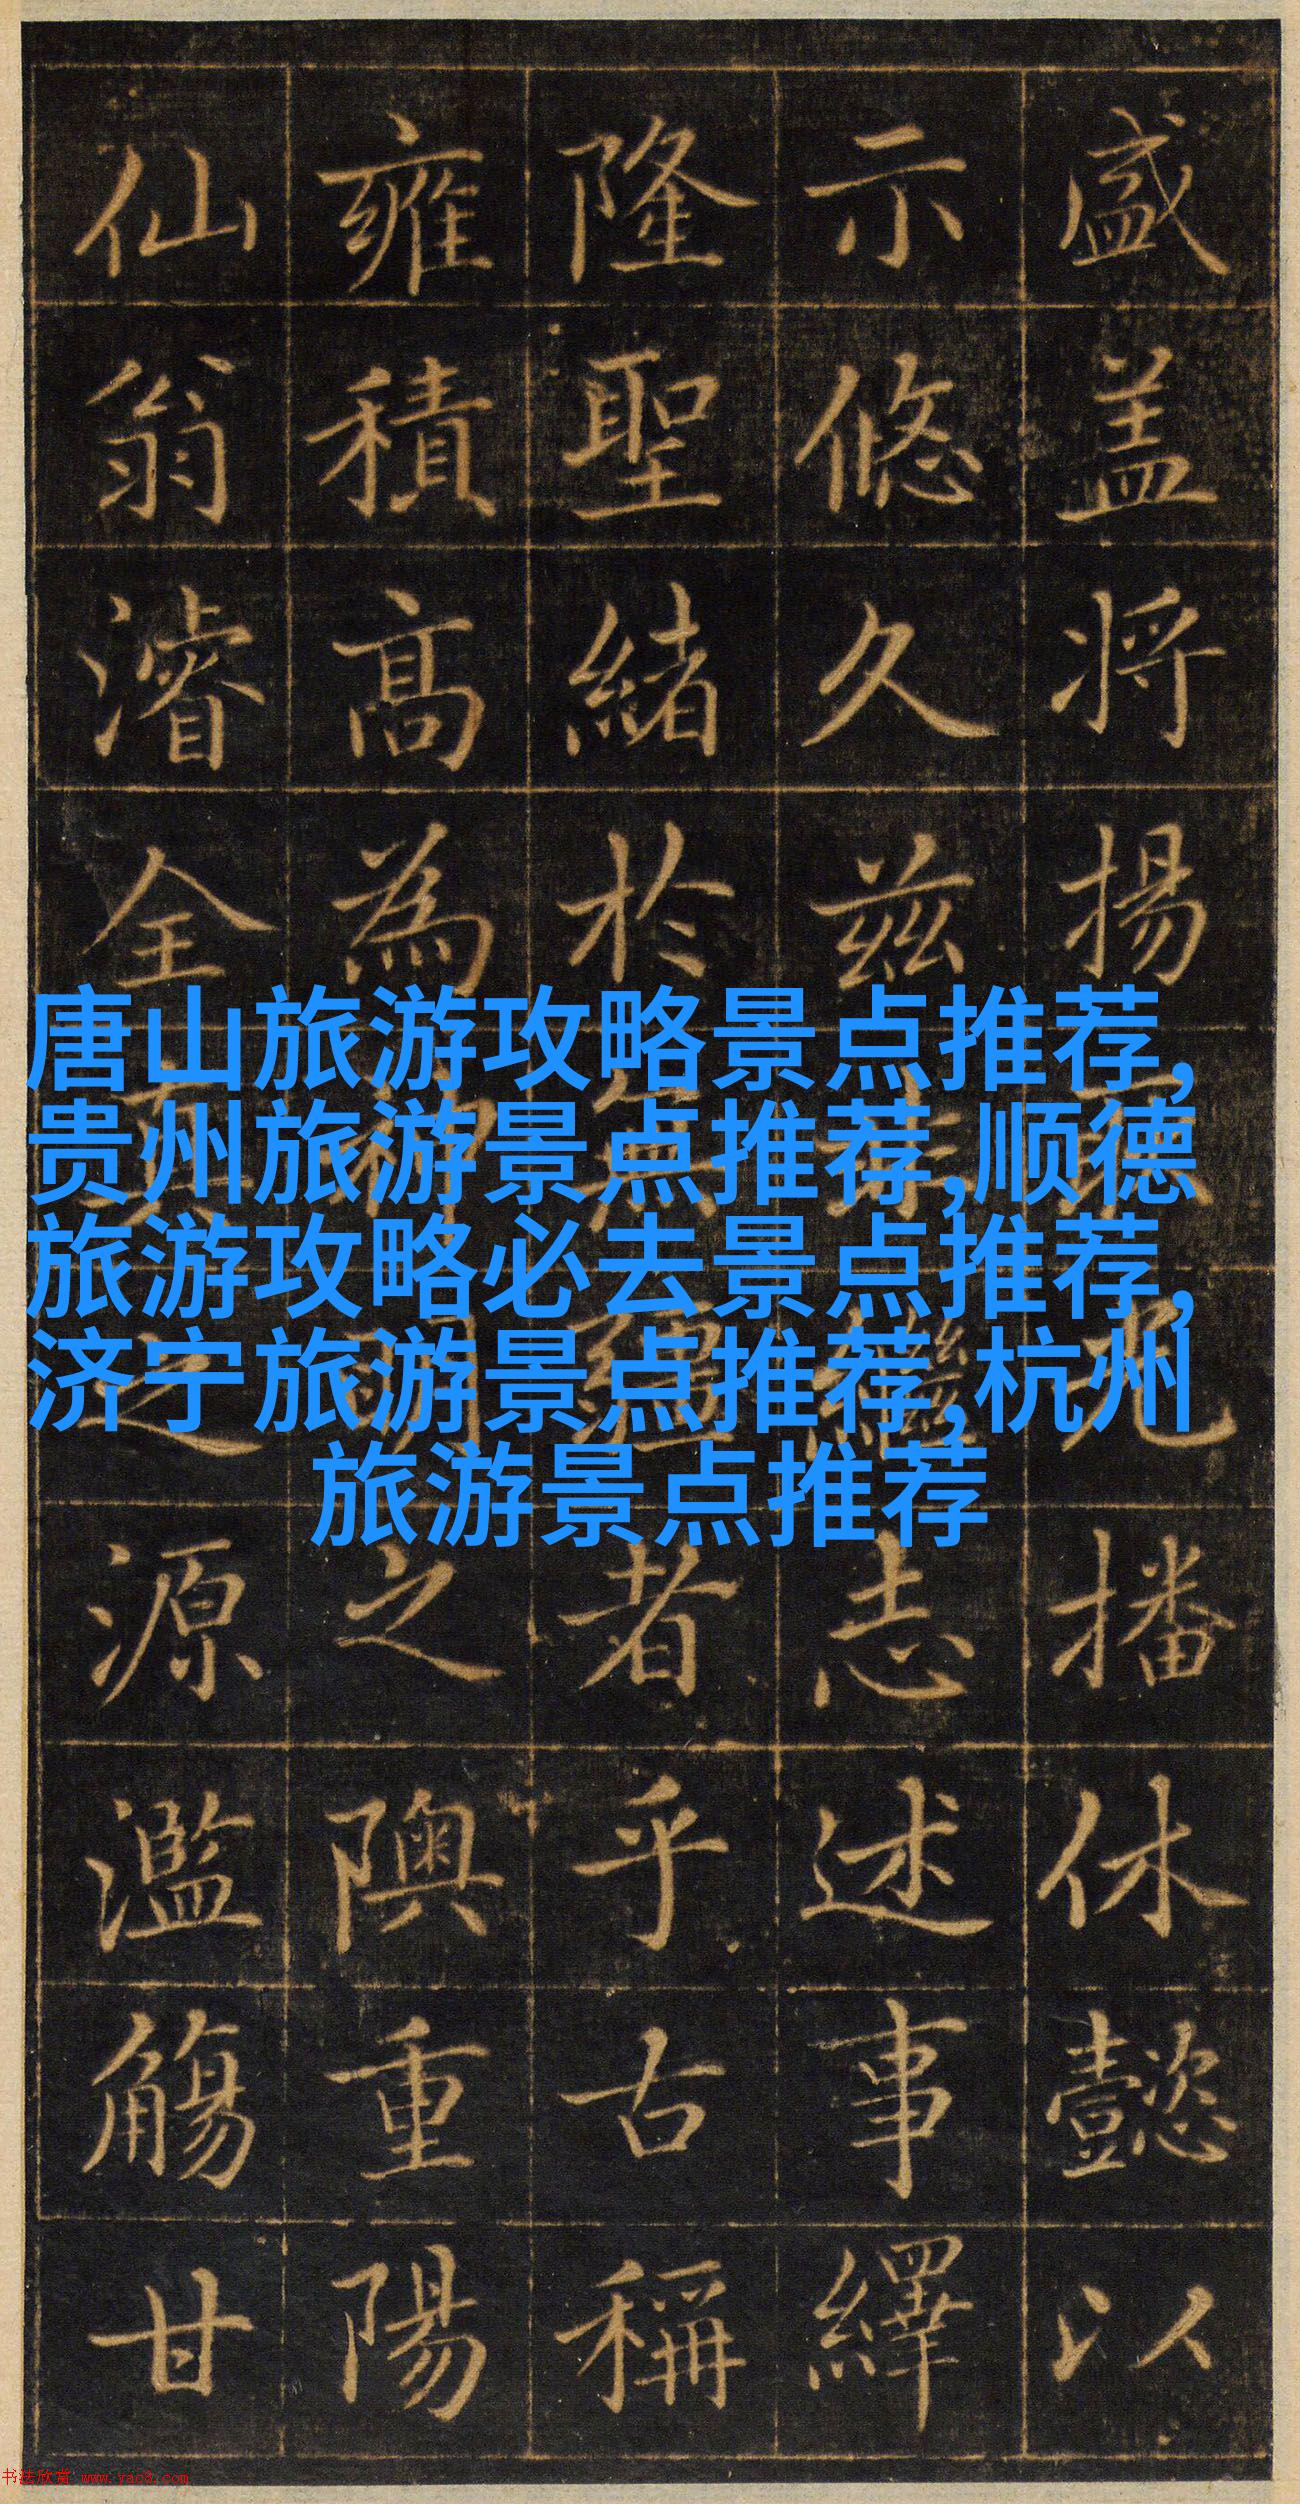 盛盖将揚光播休懿以
示悠久兹孝繼志述事繹
隆聖緒於無疆者乎古稱
雍積高為神明之隩重陽
仙翁濬全真之源濫觴甘
唐山旅游攻略景点推荐,
贵州旅游景点推荐,顺德
旅游攻略必去景点推荐,
济宁旅游景点推荐,杭州
旅游景点推荐
书法欣赏 www.yac8.com